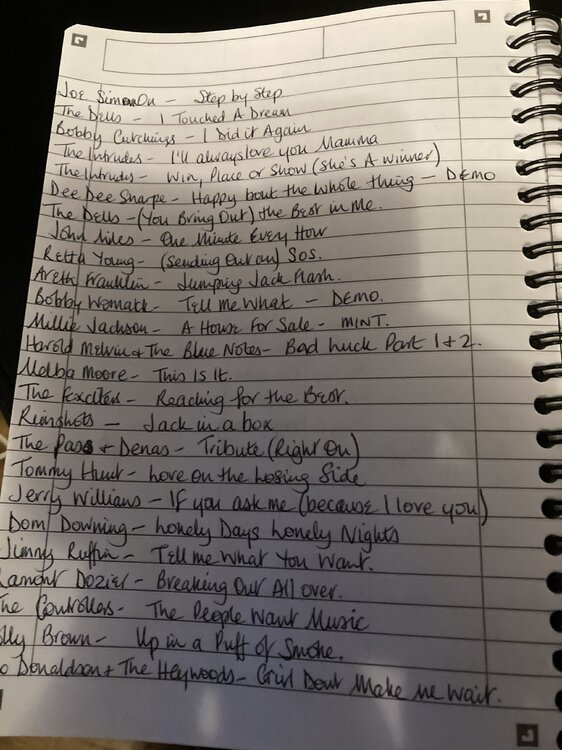 Joe Simon On - Step by Step
The Dells - I Touched A Dream
Bobby Cutchings - I Did it Again
The Intrudes - I'll always love you Mamma
The Intrudes - Win, Place or Show (She's A Winner)
Dee Dee Sharpe - Happy bout the whole thing - DEMO
The Dells - (You Bring Out) the Best in Me.
John Miles - One Minute Every Hour
Retta Young - (Sending Out an) Sos.
Areth Franklin - Jumping Jack Flash.
Bobby Womack - Tell me What - DEMO.
Millie Jackson - A House For Sale - MINT.
Harold Melvin & The Blue Notes - Bad Luck Part 1 + 2.
Melba Moore - This Is It.
The Exciters - Reaching for the Best.
Rimshots - Jack in a box
The Pas + Denas - Tribute (Right On)
Tommy Hunt - Love on the Losing Side
Jerry Williams - If you ask me (because I love you)
Dom Downing - Lonely Days Lonely Nights
Jimmy Ruffin - Tell me What You Want.
Lamont Dozier - Breaking Out All over.
The Controllers - The People Want Music
olly Brown - Up in a Puff of Smoke.
o Donaldson + The Heywoods - Girl Dont Make me Wait.